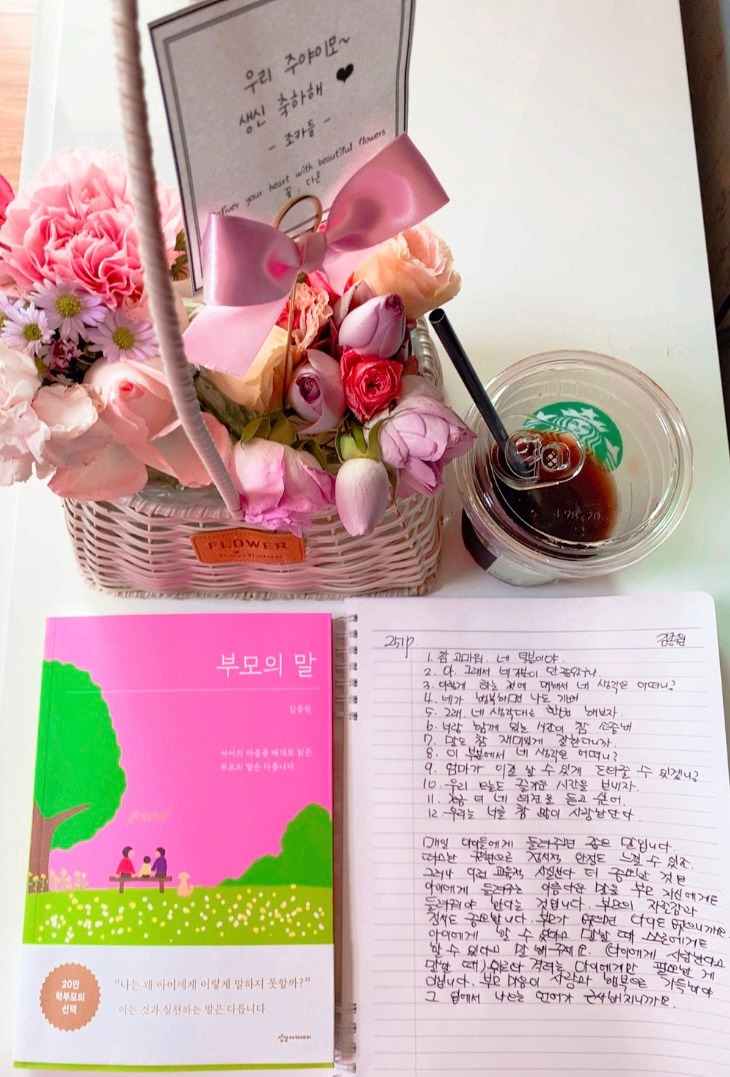 우리 주야이모~
생신 축하해 ♥
- 조카들 -
your heart with beautiful flowers
꽃, 다온
FLOWER
부모의 말
김종원
아이의 마음을 제대로 읽은
부모의 말은 다릅니다
20만
학부모의
선택
“나는 왜 아이에게 이렇게 말하지 못할까?”
아는 것과 실천하는 말은 다릅니다
상상아카데미
251p 김종원
1. 참 고마워. 네 덕분이야.
2. 아, 그래서 네 기분이 안 좋았구나.
3. 이렇게 하는 것에 대해서 네 생각은 어떠니?
4. 네가 행복하면 나도 기뻐
5. 그래, 네 생각대로 한번 해보자.
6. 너랑 함께 있는 시간이 참 소중해
7. 말도 참 재미있게 잘한다니까.
8. 이 부분에서 네 생각은 어떠니?
9. 엄마가 이걸 할 수 있게 도와줄 수 있겠니?
10. 우리 오늘도 즐거운 시간을 보내자.
11. 조금 더 네 의견을 듣고 싶어.
12. 우리는 너를 참 많이 사랑한단다.
매일 아이들에게 들려주면 좋은 말입니다.
따스한 공감으로 정서적 안정도 느낄 수 있죠.
그러나 이런 교육적 시점보다 더 중요한 것은
아이에게 들려주는 아름다운 말을 부모 자신에게도
들려줘야 한다는 것입니다. 부모의 자존감과
정서도 중요합니다. 부모가 없으면 아이도 없으니까요.
아이에게 할 수 있다고 말할 때 스스로에게도
할 수 있다고 말해주세요. (아이에게 사랑한다고
말할 때) 위로와 격려는 아이에게만 필요한 게
아닙니다. 부모 마음이 사랑과 행복으로 가득해야
그 입에서 나오는 언어가 근사해지니까요.